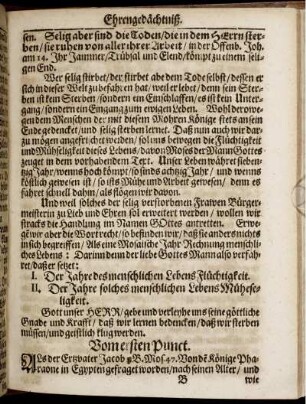 Ehrengedächtniß.
sen. Selig aber sind die Toden/die in dem HErrn ster-
ben/sie ruhen von aller ihrer Arbeit/in der Offenb. Joh.
am 14. Ihr Jammer/Trübsal und Elend/kömpt zu einem seli-
gen End.
Wer selig stirbet/der stirbet abe dem Tode selbst/dessen er
sich in dieser Welt zu befahren hat/weil er lebet/denn sein Ster-
ben ist kein Sterben/sondern ein Einschlaffen/es ist kein Unter-
gang/sondern ein Eingang zum ewigen Leben. Wohl der we-
gen dem Menschen der mit diesem Mohren Könige stets an sein
Ende gedencket/und selig sterben lernet. Daß nun auch wir dar-
zu mögen angefrischet werden/sol uns bewogen die Flüchtigkeit
und Müheseligkeit dieses Lebens/davon Moses der Mann Gottes
zeuget in dem vorhabendem Text. Unser Leben währet sieben-
tzig Jahr/wenns hoch kömpt/so sinds achtzig Jahr/und wenns
köstlich gewesen ist/so ists Mühe und Arbeit gewesen/denn es
fähret schnell dahin/als flögen wir davon.
Und weil solches der selig verstorbenen Frawen Bürger-
meisterin zu Lieb und Ehren sol erweitert werden/wollen wir
stracks die Handlung im Namen GOttes antretten. Erwe-
ge wir aber die Wort recht/so befinden wir/daß sie anders nichts
in sich begreiffen/Als eine Mosaische Jahr Rechnung menschli-
ches Lebens: Darinn denn der liebe Gottes Mann also verfäh-
ret/daß er setzet:
I. Der Jahre des menschlichen Lebens Flüchtigkeit.
II. Der Jahre solches menschlichen Lebens Mühese-
ligkeit.
Gott unser HERR/gebe und verleyhe uns seine göttliche
Gnade und Krafft/daß wir lernen bedencken/daß wir sterben
müssen/und geistlich klug werden.
Vom ersten Punct.
ALs der Ertzvater Jacob 1. B. Mos. 47. von dem Könige Pha-
raone in Egypten gefraget worden/nach seinen Alter/und
B
wie